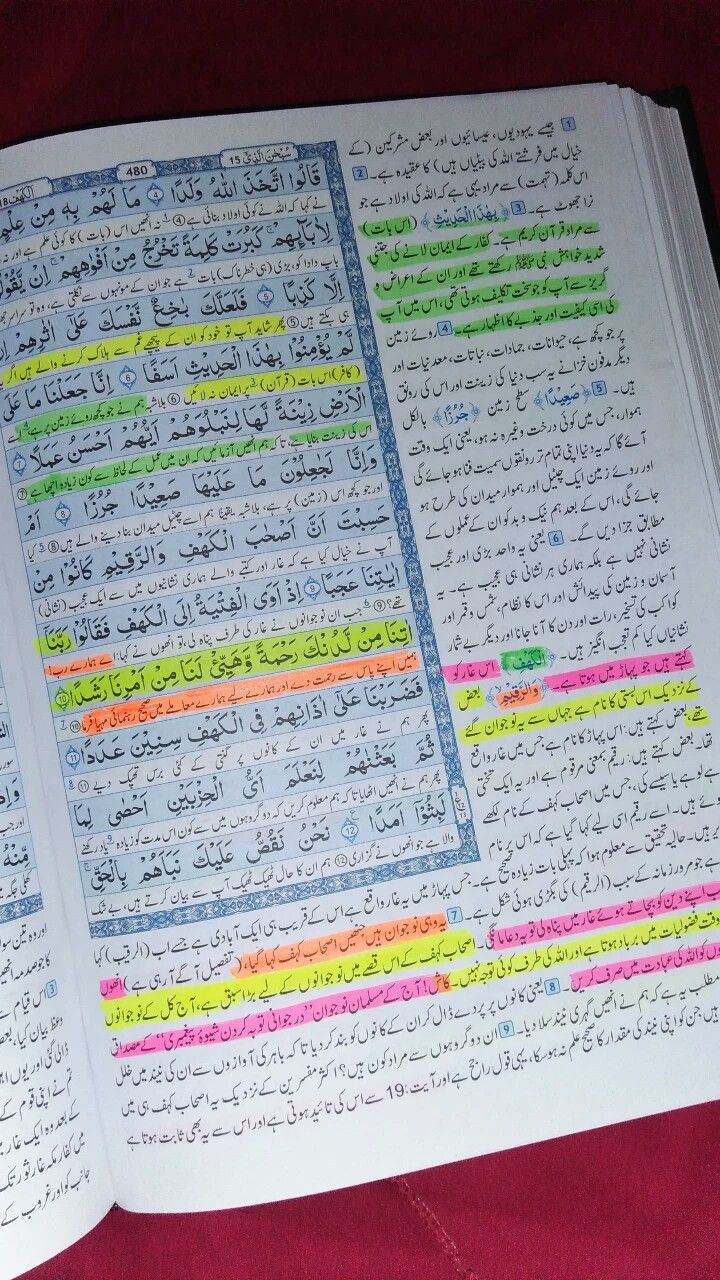 الکھف 18
480
سُبْحٰنَ الَّذِیْٓ 15
قَالُوا اتَّخَذَ اللّٰهُ وَلَدًا ④ مَا لَهُمْ بِهٖ مِنْ عِلْمٍ
نے کہا کہ اللہ نے کوئی اولاد بنائی ہے ④ نہ انھیں اس (بات) کا کوئی علم ہے اور نہ
لِاٰبَآىِٕهِمْ كَبُرَتْ كَلِمَةً تَخْرُجُ مِنْ اَفْوَاهِهِمْ اِنْ يَّقُوْلُوْنَ
باپ دادا کو، بڑی (ہی خطرناک) بات ہے جو ان کے مونہوں سے نکلتی ہے، وہ تو سراسر جھوٹ
اِلَّا كَذِبًا ⑤ فَلَعَلَّكَ بَاخِعٌ نَّفْسَكَ عَلٰۤى اٰثَارِهِمْ اِنْ
ہی بکتے ہیں ⑤ پھر شاید آپ تو خود کو ان کے پیچھے غم سے ہلاک کرنے والے ہیں اگر
لَّمْ يُؤْمِنُوْا بِهٰذَا الْحَدِيْثِ اَسَفًا ⑥ اِنَّا جَعَلْنَا مَا عَلَى
(کافر) اس بات (قرآن) پر ایمان نہ لائیں ⑥ بلاشبہ ہم نے جو کچھ روئے زمین پر ہے، اسے
الْاَرْضِ زِيْنَةً لَّهَا لِنَبْلُوَهُمْ اَيُّهُمْ اَحْسَنُ عَمَلًا ⑦
اس کی زینت بنایا ہے، تاکہ ہم انھیں آزمائیں کہ ان میں عمل کے لحاظ سے کون زیادہ اچھا ہے ⑦
وَاِنَّا لَجٰعِلُوْنَ مَا عَلَيْهَا صَعِيْدًا جُرُزًا ⑧ اَمْ
اور جو کچھ اس (زمین) پر ہے، بلاشبہ یقیناً ہم اسے چٹیل میدان بنا دینے والے ہیں ⑧ کیا
حَسِبْتَ اَنَّ اَصْحٰبَ الْكَهْفِ وَالرَّقِيْمِ كَانُوْا مِنْ
آپ نے خیال کیا ہے کہ غار اور کتبے والے ہماری نشانیوں میں سے ایک عجیب (نشانی)
اٰيٰتِنَا عَجَبًا ⑨ اِذْ اَوَى الْفِتْيَةُ اِلَى الْكَهْفِ فَقَالُوْا رَبَّنَاۤ
تھے؟ ⑨ جب ان نوجوانوں نے غار کی طرف پناہ لی، تو انھوں نے کہا: اے ہمارے رب!
اٰتِنَا مِنْ لَّدُنْكَ رَحْمَةً وَّهَيِّئْ لَنَا مِنْ اَمْرِنَا رَشَدًا ⑩
ہمیں اپنے پاس سے رحمت دے اور ہمارے لیے ہمارے معاملے میں صحیح رہنمائی مہیا فرما ⑩
فَضَرَبْنَا عَلٰۤى اٰذَانِهِمْ فِى الْكَهْفِ سِنِيْنَ عَدَدًا ⑪
پھر ہم نے غار میں ان کے کانوں پر گنتی کے کئی برس تھپک دیے ⑪
ثُمَّ بَعَثْنٰهُمْ لِنَعْلَمَ اَىُّ الْحِزْبَيْنِ اَحْصٰى لِمَا
پھر ہم نے انھیں اٹھایا تاکہ ہم معلوم کریں کہ دو گروہوں میں سے کون اس مدت کو زیادہ یاد رکھنے
لَبِثُوْۤا اَمَدًا ⑫ نَحْنُ نَقُصُّ عَلَيْكَ نَبَاَهُمْ بِالْحَقِّ
والا ہے جو انھوں نے گزاری ⑫ ہم ان کا حال ٹھیک ٹھیک آپ سے بیان کرتے ہیں، بے شک
1 جیسے یہودیوں، عیسائیوں اور بعض مشرکین (کے
خیال میں فرشتے اللہ کی بیٹیاں ہیں) کا عقیدہ ہے۔ 2
اس کلمہ (تہمت) سے مراد یہی ہے کہ اللہ کی اولاد ہے جو
نرا جھوٹ ہے۔ 3 ﴿بِهٰذَا الْحَدِيْثِ﴾ (اس بات)
سے مراد قرآن کریم ہے۔ کفار کے ایمان لانے کی جتنی
شدید خواہش نبی ﷺ رکھتے تھے اور ان کے اعراض و
گریز سے آپ کو جو سخت تکلیف ہوتی تھی، اس میں آپ
کی اسی کیفیت اور جذبے کا اظہار ہے۔ 4 روئے زمین
پر جو کچھ ہے، حیوانات، جمادات، نباتات، معدنیات اور
دیگر مدفون خزانے یہ سب دنیا کی زینت اور اس کی رونق
ہیں۔ 5 ﴿صَعِيْدًا﴾ سطح زمین ﴿جُرُزًا﴾ بالکل
ہموار، جس میں کوئی درخت وغیرہ نہ ہو، یعنی ایک وقت
آئے گا کہ یہ دنیا اپنی تمام تر رونقوں سمیت فنا ہو جائے گی
اور روئے زمین ایک چٹیل اور ہموار میدان کی طرح ہو
جائے گی، اس کے بعد ہم نیک و بد کو ان کے عملوں کے
مطابق جزا دیں گے۔ 6 یعنی یہ واحد بڑی اور عجیب
نشانی نہیں ہے بلکہ ہماری ہر نشانی ہی عجیب ہے۔ یہ
آسمان و زمین کی پیدائش اور اس کا نظام، شمس و قمر اور
کواکب کی تسخیر، رات اور دن کا آنا جانا اور دیگر بے شمار
نشانیاں کیا کم تعجب انگیز ہیں۔ ﴿الْكَهْفِ﴾ اس غار کو
کہتے ہیں جو پہاڑ میں ہوتا ہے۔ ﴿وَالرَّقِيْمِ﴾ بعض
کے نزدیک اس بستی کا نام ہے جہاں سے یہ نوجوان گئے
تھے، بعض کہتے ہیں: اس پہاڑ کا نام ہے جس میں غار واقع
تھا۔ بعض کہتے ہیں: رقیم بمعنی مرقوم ہے اور یہ ایک تختی
ہے لوہے یا سیسے کی، جس میں اصحاب کہف کے نام لکھے
ہوئے ہیں۔ اسے رقیم اسی لیے کہا گیا ہے کہ اس پر نام
ہیں۔ حالیہ تحقیق سے معلوم ہوا کہ پہلی بات زیادہ صحیح ہے۔ جس پہاڑ میں یہ غار واقع ہے اس کے قریب ہی ایک آبادی ہے جسے اب (الرقیب) کہا
ہے جو مرور زمانہ کے سبب (الرقیم) کی بگڑی ہوئی شکل ہے۔ 7 یہ وہی نوجوان ہیں جنھیں اصحاب کہف کہا گیا، (تفصیل آگے آ رہی ہے) انھوں
اپنے دین کو بچاتے ہوئے غار میں پناہ لی تو یہ دعا مانگی۔ اصحاب کہف کے اس قصے میں نوجوانوں کے لیے بڑا سبق ہے، آج کل کے نوجوانوں
وقت فضولیات میں برباد ہوتا ہے اور اللہ کی طرف کوئی توجہ نہیں۔ کاش! آج کے مسلمان نوجوان ”در جوانی توبہ کردن شیوۂ پیغمبری“ کے مصداق
کو اللہ کی عبادت میں صرف کریں۔ 8 یعنی کانوں پر پردے ڈال کر ان کے کانوں کو بند کر دیا تاکہ باہر کی آوازوں سے ان کی نیند میں خلل
مطلب یہ ہے کہ ہم نے انھیں گہری نیند سلا دیا۔ 9 ان دو گروہوں سے مراد کون ہیں؟ اکثر مفسرین کے نزدیک یہ اصحاب کہف ہی میں
ہیں جن کو اپنی نیند کی مقدار کا صحیح علم نہ ہو سکا، یہی قول راجح ہے اور آیت: 19 سے اس کی تائید ہوتی ہے اور اس سے یہ بھی ثابت ہوتا ہے